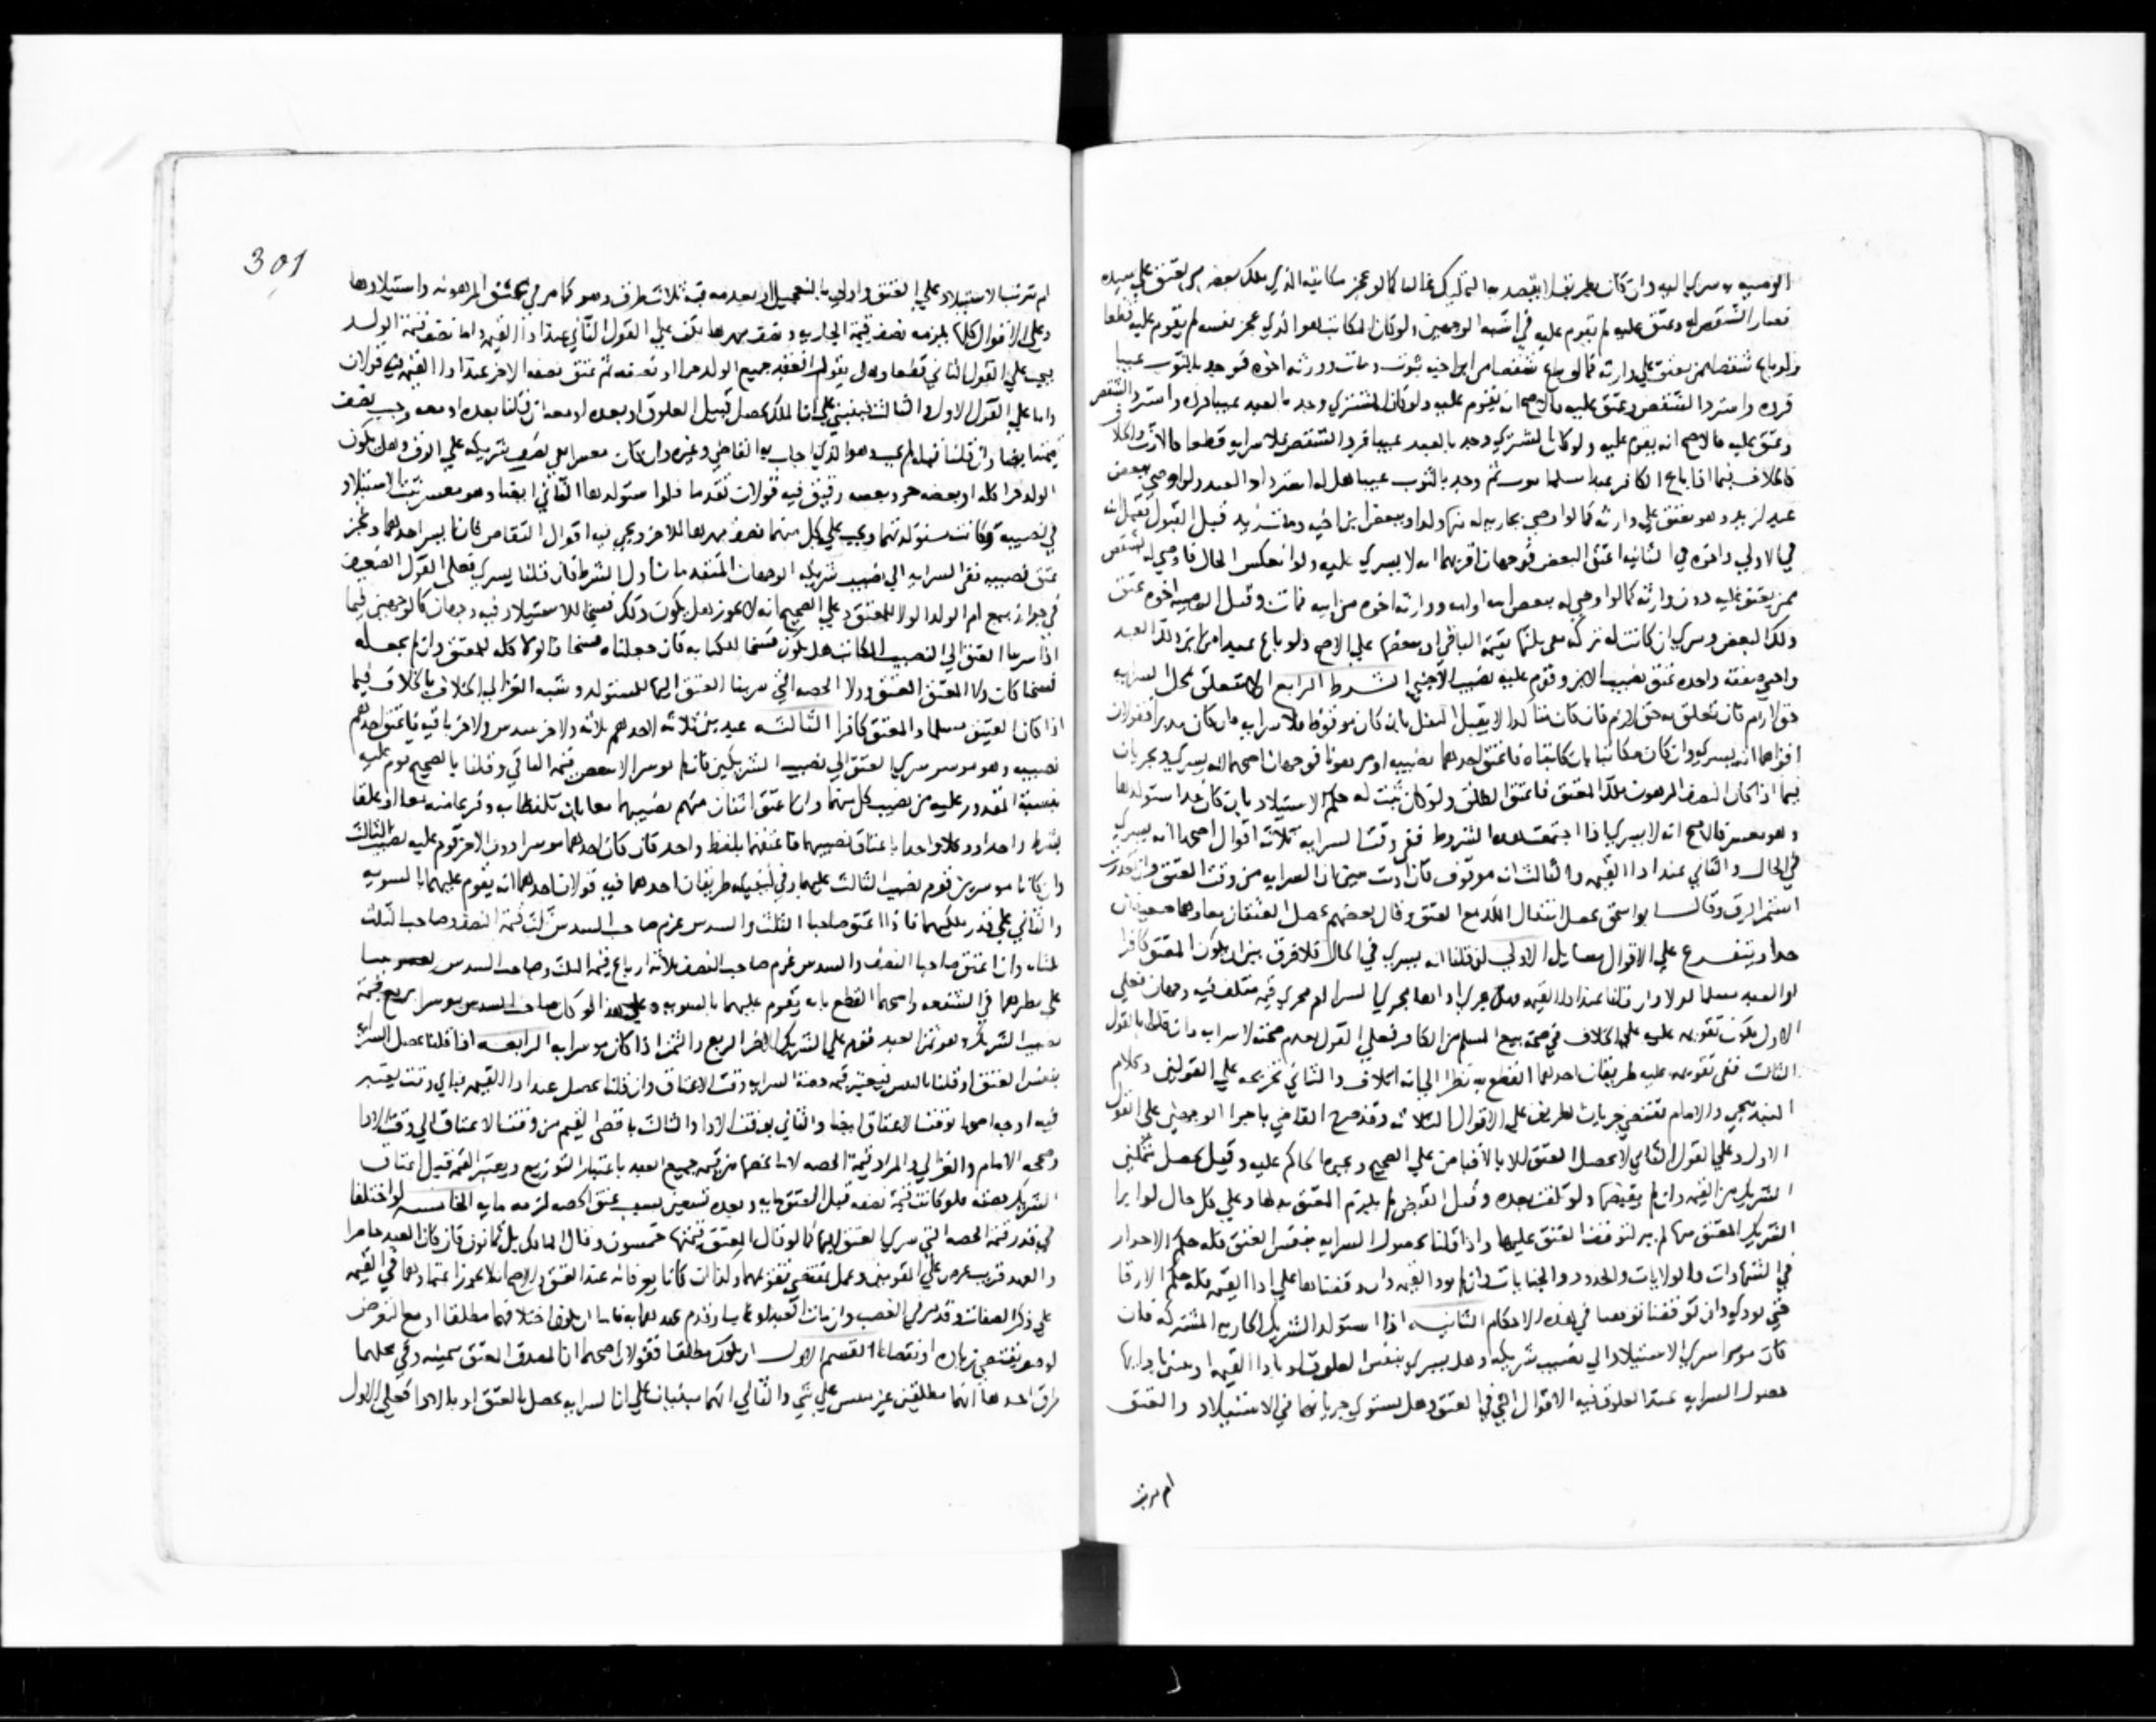 الوصية سري اليه وان كان بطريق لا يقصد به التمليك غالبا كما لو عجز مكاتبه الذي ملك بعض من يعتق علي سيده
فصار الشقص له وعتق عليه لم يقوم عليه في اشبه الوجهين ولو كان المكاتب هو الذي عجز نفسه لم يقوم عليه قطعا
ولو باع شقصا ممن يعتق علي وارثه كما لو باع شقصا من ابن اخيه بثوب ومات وورثه اخوه فوجد بالثوب عيبا
فرده واسترد الشقص وعتق عليه فالاصح انه يقوم عليه ولو كان المشتري وجد بالعبد عيبا فرده واسترد الشقص
وعتق عليه فالاصح انه يقوم عليه ولو كان المشتري وجد بالعبد عيبا فرد الشقص فلا سراية قطعا كالارث ولا
كالخلاف فيما اذا باع الكافر عبدا مسلما بثوب ثم وجد بالثوب عيبا هل له استرداد العبد ولو اوصي ببعض
عبد لزيد وهو يعتق علي وارثه كما لو اوصي بجارية له منها ولد او ببعض ابن اخيه ومات زيد قبل القبول فقبل ابنه
في الاولي واخوه في الثانية اعتق البعض فوجهان اقربهما انه لا يسري عليه ولو انعكس الحال فاوصي له بشقص
ممن يعتق عليه دون وارثه كما لو اوصي له ببعض ابيه او ابنه ووارثه اخوه من ابيه فمات وقبل الوصية اخوه عتق
ذلك البعض وسري ان كانت له تركة يفي ثلثها بقيمة الباقي او بعضها علي الاصح ولو باع عبد امراته ذلك العبد
واجنبي صفقة واحدة عتق نصيب الابن وقوم عليه نصيب الاجنبي الشرط الرابع ان لا يتعلق بمحل السراية
حق لازم فان تعلق به حق لازم فان كان مما لا يقبل النقل بان كان موقوفا فلا سراية وان كان مدبرا فقولان
اقواهما انه يسري وان كان مكاتبا بان كاتباه فاعتق احدهما نصيبه او مرهونا فوجهان اصحهما انه يسري ويجريان
فيما اذا كان النصف المرهون ملك المعتق فاعتق الطلق ولو كان ثبت له حكم الاستيلاد بان كان قد استولدها
وهو معسر فالاصح انه لا يسري فاذا اجتمعت هذه الشروط ففي وقت السراية ثلاثة اقوال اصحها انه يسري
في الحال والثاني عند اداء القيمة والثالث انه موقوف فان اديت تبينا ان السراية من وقت العتق وان
استمر الرق وقال ابو اسحق يحصل انتقال الملك مع العتق وقال بعضهم يحصل العتقان معا وهما ضعيفان
جدا ويتفرع علي الاقوال مسايل الاولي لو قلنا انه يسري في الحال فلا فرق بين ان يكون المعتق كافرا
او العبد مسلما اولا وان قلنا عند اداء القيمة فهل يجري اداؤها مجري السراية ام مجري قيمة متلف فيه وجهان فعلي
الاول يكون تقويمه عليه علي الخلاف في صحة بيع المسلم من الكافر فعلي القول بعدم صحته لا سراية وان قلنا بالقول
الثالث ففي تقويمه عليه طريقان احدهما القطع به نظرا الي انه اتلاف والثاني تخريجه علي القولين وكلام
البندنيجي والامام يقتضي جريان الطريقين علي الاقوال الثلاثة وقد صرح القاضي باجرا الوجهين علي القول
الاول وعلي القول الثاني لا يحصل العتق الا بالاقباض علي الصحيح ويجبره الحاكم عليه وقيل يحصل بتمكين
الشريك من القيمة وان لم يقبضها ولو تلفت بعده وقبل القبض لم يلزم المعتق بدلها وعلي كل حال لو ابرا
الشريك المعتق منها لم يبر لتوقف العتق عليها واذا قلنا بحصول السراية بنفس العتق فله حكم الاحرار
في الشهادات والولايات والحدود والجنايات وان لم يود القيمة وان وقفناها علي اداء القيمة فله حكم الارقا
حتي يودي وان توقفنا توقفنا في هذه الاحكام الثانية اذا استولد الشريك الجارية المشتركة فان
كان موسرا سري الاستيلاد الي نصيب شريكه وهل يسري بنفس العلوق او باداء القيمة او يتبين بادائها
حصول السراية عند العلوق فيه الاقوال التي في العتق وهل يستوي جريانها في الاستيلاد والعتق
ام مرتب
301
ام ترتب الاستيلاد علي العتق واولي بالتعجيل او بعدمه فيه ثلاث طرق وهو كما مر في عتق المرهونة واستيلادها
وعلي الاقوال كلها يلزمه نصف قيمة الجارية ونصف مهرها لكن علي القول الثاني عند اداء القيمة واما نصف قيمة الولد
يجب علي القول الثاني قطعا وهل يقول انعقد جميع الولد حرا او نصفه ثم عتق نصفه الاخر عند اداء القيمة فيه قولان
واما علي القول الاول والثالث فينبني علي ان الملك يحصل قبيل العلوق او بعده او معه ان قلنا بعده او معه وجب نصف
قيمتها ايضا وان قلنا قبله لم يجب وهو الذي اجاب به القاضي وغيره وان كان معسرا بقي نصيب شريكه علي الرق وهل يكون
الولد حرا كله او بعضه حر وبعضه رقيق فيه قولان تقدما فلو استولدها الثاني ايضا وهو معسر ثبت الاستيلاد
في نصيبه وكانت مستولدتهما ويجب علي كل منهما نصف مهرها للاخر ويجي فيه اقوال التقاص فان ايسر احدهما ونجز
عتق نصيبه ففي السراية الي نصيب شريكه الوجهان المتقدمان اول الشرط فان قلنا يسري فعلي القول الضعيف
في جواز بيع ام الولد الولا للمعتق وعلي الصحيح انه لا يجوز هل يكون ذلك فسخا للاستيلاد فيه وجهان كالوجهين فيما
اذا سري العتق الي النصيب المكاتب هل يكون فسخا للكتابة فان جعلناه فسخا فالولا كله للمعتق وان لم نجعله
فسخا كان ولا المعتق للمعتق وولا الحصة التي سري العتق اليها للمستولد وشبه الغزالي الخلاف بالخلاف فيما
اذا كان العتيق مسلما والمعتق كافرا الثالثة عبد بين ثلاثة لاحدهم ثلثه ولاخر سدس ولاخر باقيه فاعتق احدهم
نصيبه وهو موسر سري العتق الي نصيب الشريكين فان لم يوسر الا ببعض قيمة الباقي وقلنا بالصحيح قوم عليه
بنسبة المقدور عليه من نصيب كل منهما وان اعتق اثنان منهم نصيبهما معا بان تلفظا به وفرغا منه معا او علقا
بشرط واحد او وكلا واحدا باعتاق نصيبهما فاعتقهما بلفظ واحد فان كان احدهما موسرا دون الاخر قوم عليه نصيب الثالث
وان كانا موسرين قوم نصيب الثالث عليهما وفي كيفيته طريقان احدهما فيه قولان احدهما انه يقوم عليهما بالسوية
والثاني علي قدر ملكيهما فاذا اعتق صاحبا الثلث والسدس غرم صاحب السدس ثلث قيمة النصف وصاحب الثلث
ثلثاه وان اعتق صاحبا النصف والسدس غرم صاحب النصف ثلاثة ارباع قيمة الثلث وصاحب السدس
علي نظيرهما في الشفعة واصحهما القطع بانه يقوم عليهما بالسوية وعلي هذا لو كان صاحب السدس موسرا بربع قيمة
نصيب الشريك وهو ثمن العبد قوم علي الشريك الاخر الربع والثمن اذا كان موسرا به الرابعة اذا قلنا تحصل السراية
بنفس العتق او قلنا بالتبين فيعتبر قيمة حصة السراية وقت الاعتاق وان قلنا تحصل عند اداء القيمة فباي وقت يعتبر
فيه اوجه اصحها بوقت الاعتاق ايضا والثاني بوقت الاداء والثالث باقصي القيم من وقت الاعتاق الي وقت الاداء
وصححه الامام والغزالي والمراد قيمة الحصة لا ما يخصها من قيمة جميع العبد باعتبار التوزيع ويعتبر القيمة قبل اعتاق
الشريك نصفه فلو كانت قيمة نصفه قبل العتق ماية وبعده تسعين بسبب عتق الحصة لزمه ماية الخامسة لو اختلفا
في قدر قيمة الحصة التي سري العتق اليها كما لو قال المعتق قيمتها خمسون وقال المالك بل ثمانون فان كان العبد حاضرا
والعهد قريب عرض علي المقومين وعمل بمقتضي تقويمهما ولو مات كانا يعرفانه عند العتق فالاصح انه لا يجوز اعتمادهما في القيمة
علي ذكر الصفات وقد مر في الغصب وان مات العبد او غاب او تقدم عهدهما به فاما ان يكون اختلافهما مطلقا او مع التعرض
لوصف يقتضي زيادة او نقصانا القسم الاول ان يكون مطلقا فقولان اصحهما ان المصدق المعتق بيمينه وفي محلهما
طرق احدها انهما مطلقين غير مبنيين علي شي والثاني انهما مبنيان علي ان السراية تحصل بالعتق او بالاداء فعلي الاول